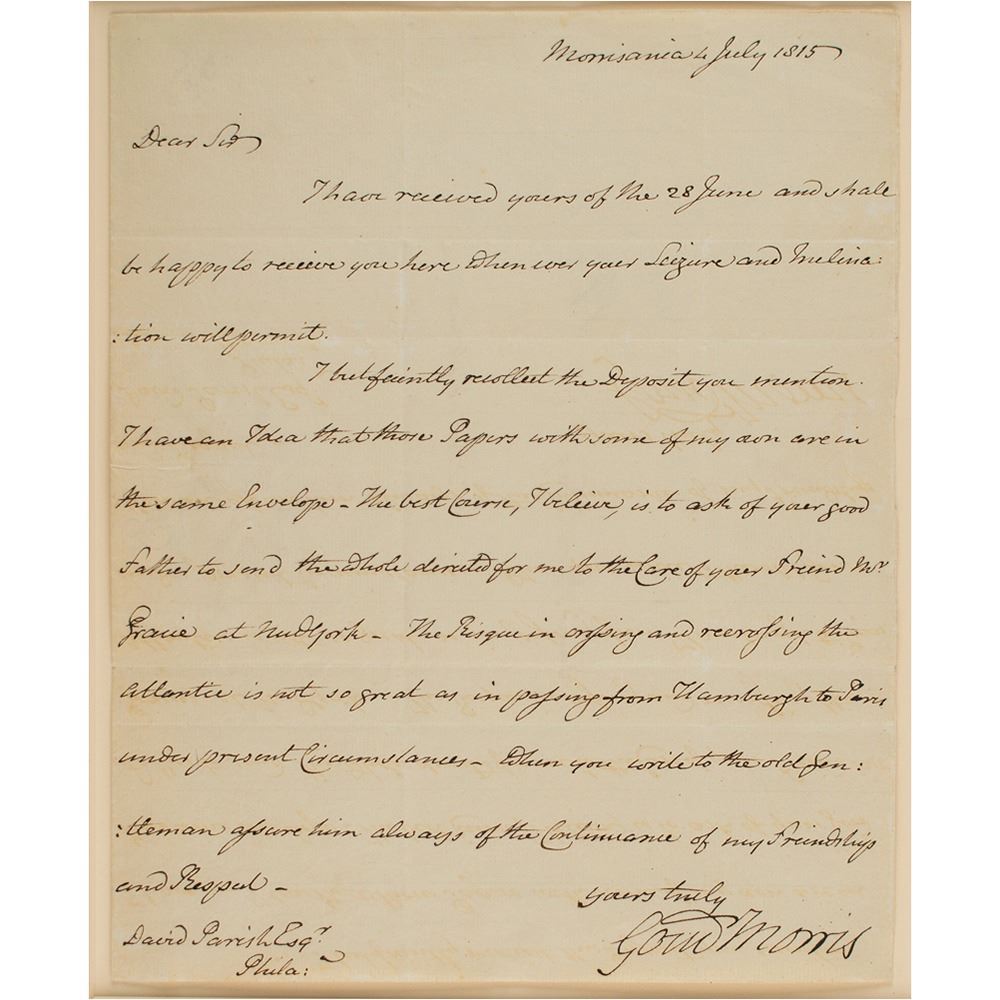 Morrisania 4 July 1815
Dear Sir
I have received yours of the 28 June and shall
be happy to receive you here whenever your Leizure and Inclina:
:tion will permit.
I but faintly recollect the Deposit you mention.
I have an Idea that those Papers with some of my own are in
the same Envelope – The best Course, I believe, is to ask of your good
Father to send the whole directed for me to the Care of your Friend Mr.
Gracie at New York – The Risque in crossing and recrossing the
Atlantic is not so great as in passing from Hamburgh to Paris
under present Circumstances – When you write to the old Gen:
:tleman assure him always of the Continuance of my Friendship
and Respect –
yours truly
Gouv Morris
David Parish Esqr.
Phila: